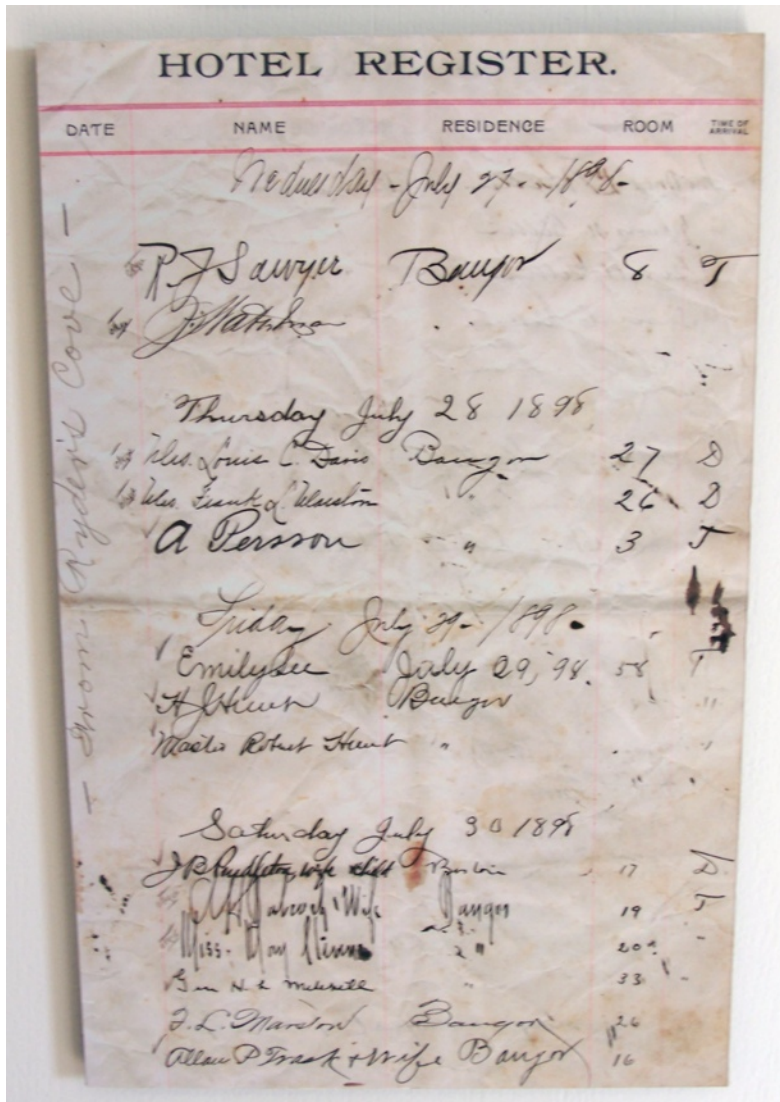 HOTEL REGISTER.
DATE NAME RESIDENCE ROOM TIME OF ARRIVAL
Wednesday - July 27 - 1898 -
R J Sawyer Bangor 8 T
Thursday July 28 1898
Mrs. Louis C. Davis Bangor 27 D
Mrs. Frank L. Marston " 26 D
A Persson " 3 T
Friday July 29 - 1898 -
July 29, 98. 58 T
H J Hunt Bangor "
Master Robert Hunt " "
" "
Saturday July 30 1898
J B Pendleton, wife & child Boston 17 D
& Wife Bangor 19 T
Miss. May " 20
H L 33
F. L. Marston Bangor 26
Allan P Trask & Wife Bangor 16
— From Ryder's Cove —